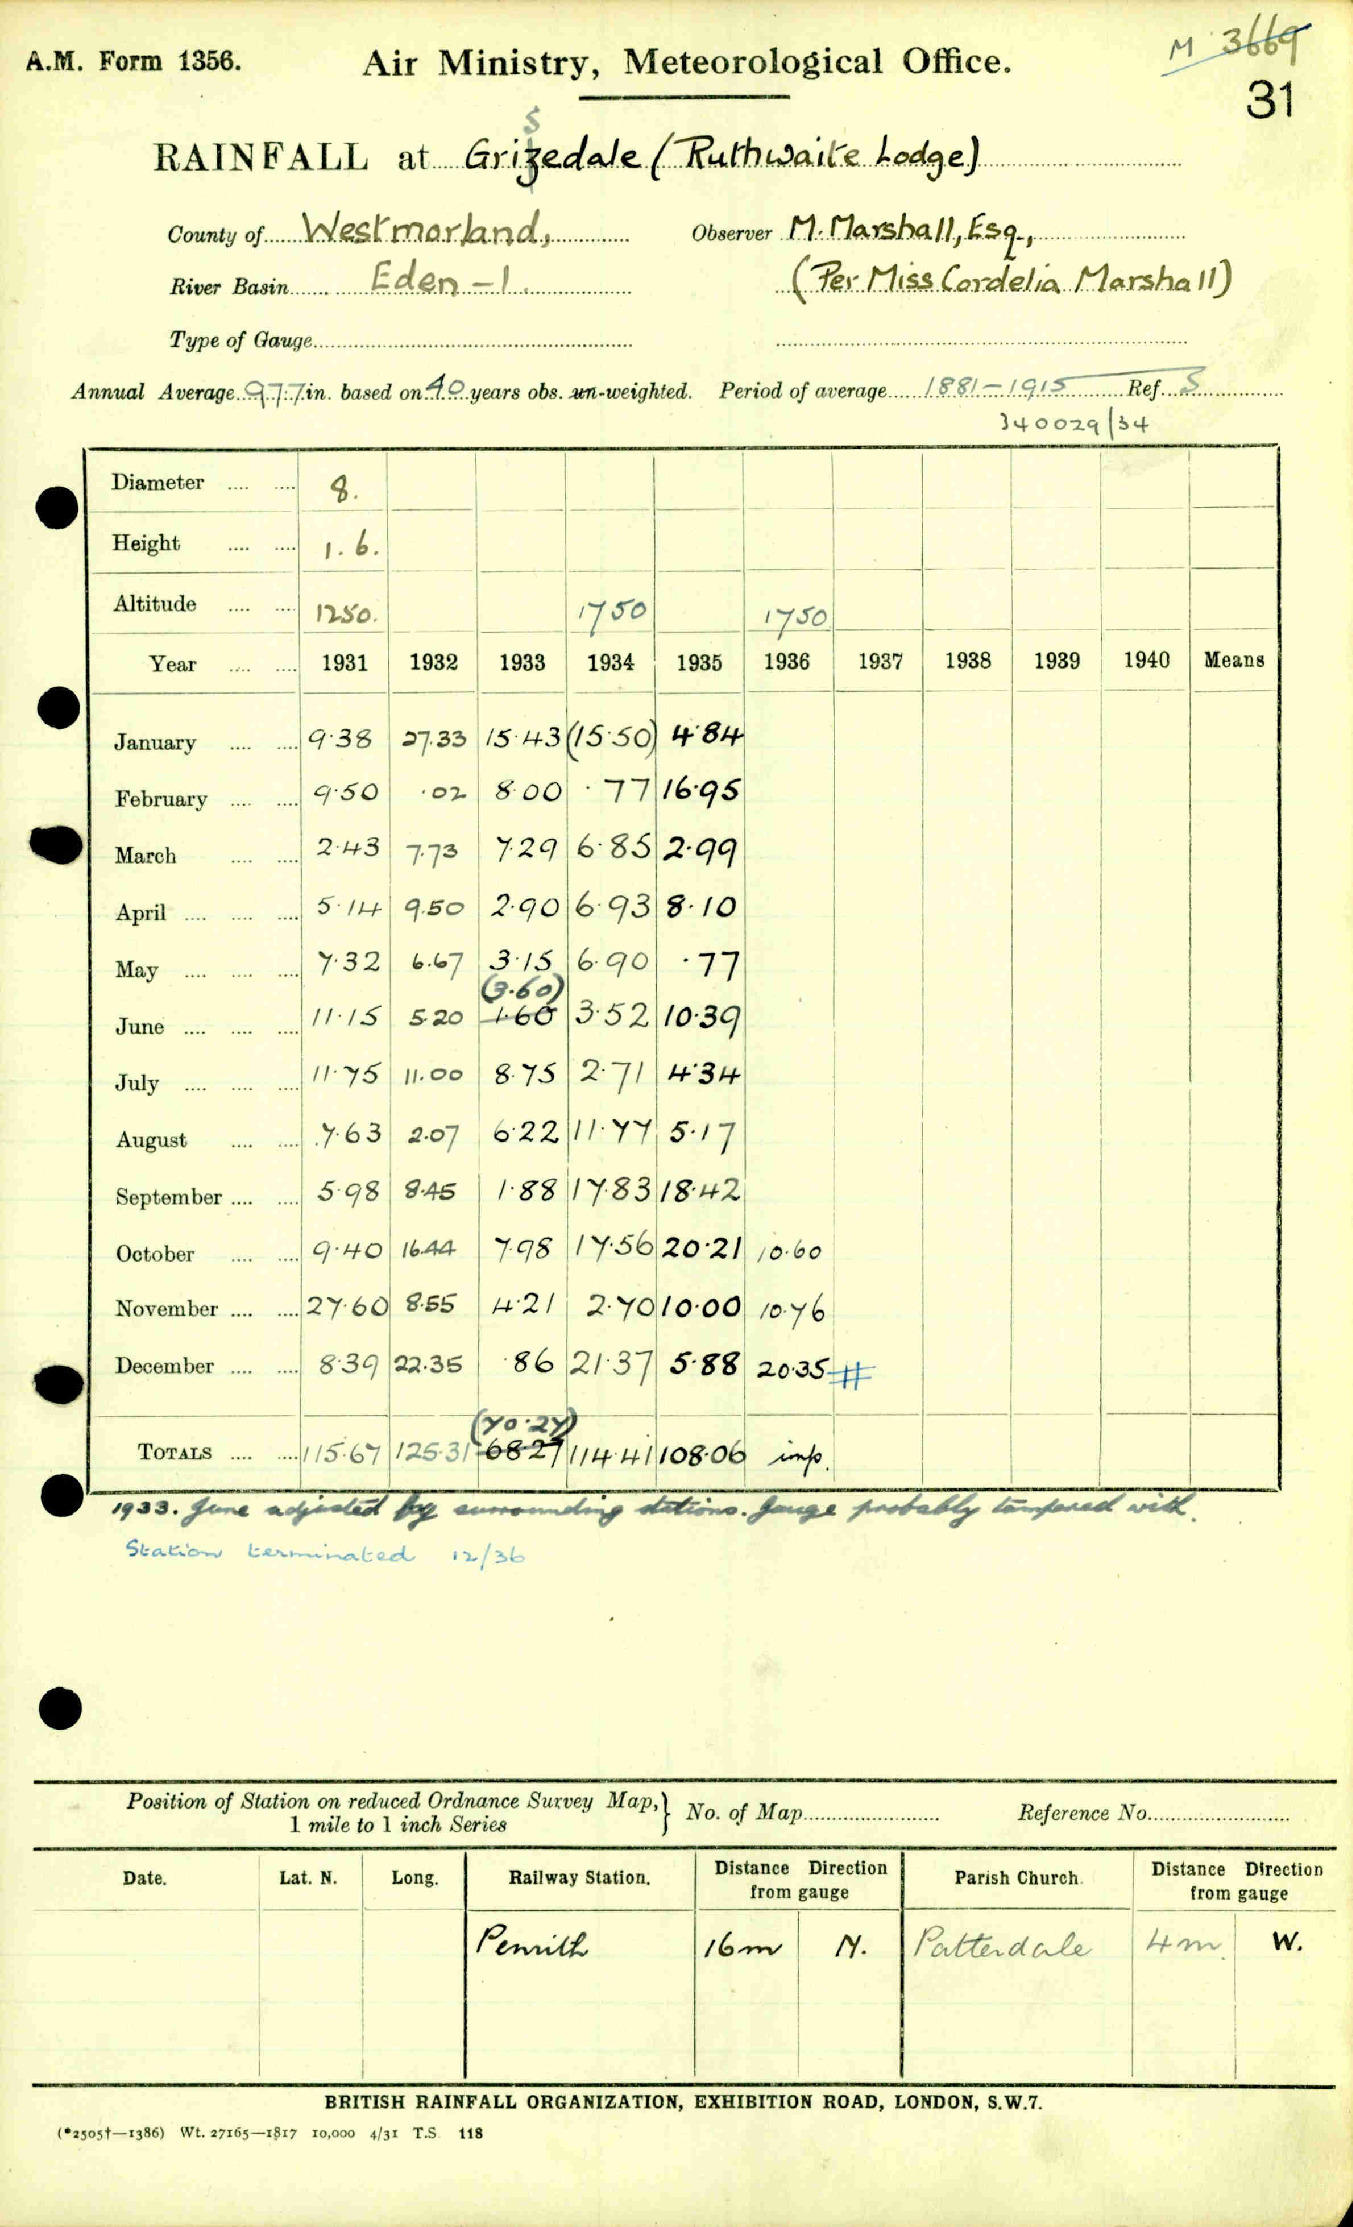 M 3669
A.M. Form 1356. Air Ministry, Meteorological Office.
31
S
RAINFALL at Grizedale (Ruthwaite Lodge)
County of Westmorland, Observer M. Marshall, Esq.,
River Basin Eden - 1. (Per Miss Cordelia Marshall)
Type of Gauge
Annual Average 97.7 in. based on 40 years obs. un-weighted. Period of average 1881 - 1915 Ref. S
340029/34
Diameter 8.
Height 1.6.
Altitude 1250. 1750 1750
Year 1931 1932 1933 1934 1935 1936 1937 1938 1939 1940 Means
January 9.38 27.33 15.43 (15.50) 4.84
February 9.50 .02 8.00 .77 16.95
March 2.43 7.73 7.29 6.85 2.99
April 5.14 9.50 2.90 6.93 8.10
May 7.32 6.67 3.15 6.90 .77
(3.60)
June 11.15 5.20 1.60 3.52 10.39
July 11.75 11.00 8.75 2.71 4.34
August 7.63 2.07 6.22 11.77 5.17
September 5.98 8.45 1.88 17.83 18.42
October 9.40 16.44 7.98 17.56 20.21 10.60
November 27.60 8.55 4.21 2.70 10.00 10.76
December 8.39 22.35 .86 21.37 5.88 20.35 #
(70.27)
TOTALS 115.67 125.31 68.27 114.41 108.06 imp.
1933. June adjusted by surrounding stations. Gauge probably tampered with.
Station terminated 12/36
Position of Station on reduced Ordnance Survey Map, } No. of Map Reference No.
1 mile to 1 inch Series
Date. Lat. N. Long. Railway Station. Distance Direction from gauge Parish Church. Distance Direction from gauge
Penrith 16m N. Patterdale 4m. W.
BRITISH RAINFALL ORGANIZATION, EXHIBITION ROAD, LONDON, S.W.7.
(*2505†—1386) Wt. 27165—1817 10,000 4/31 T.S. 118